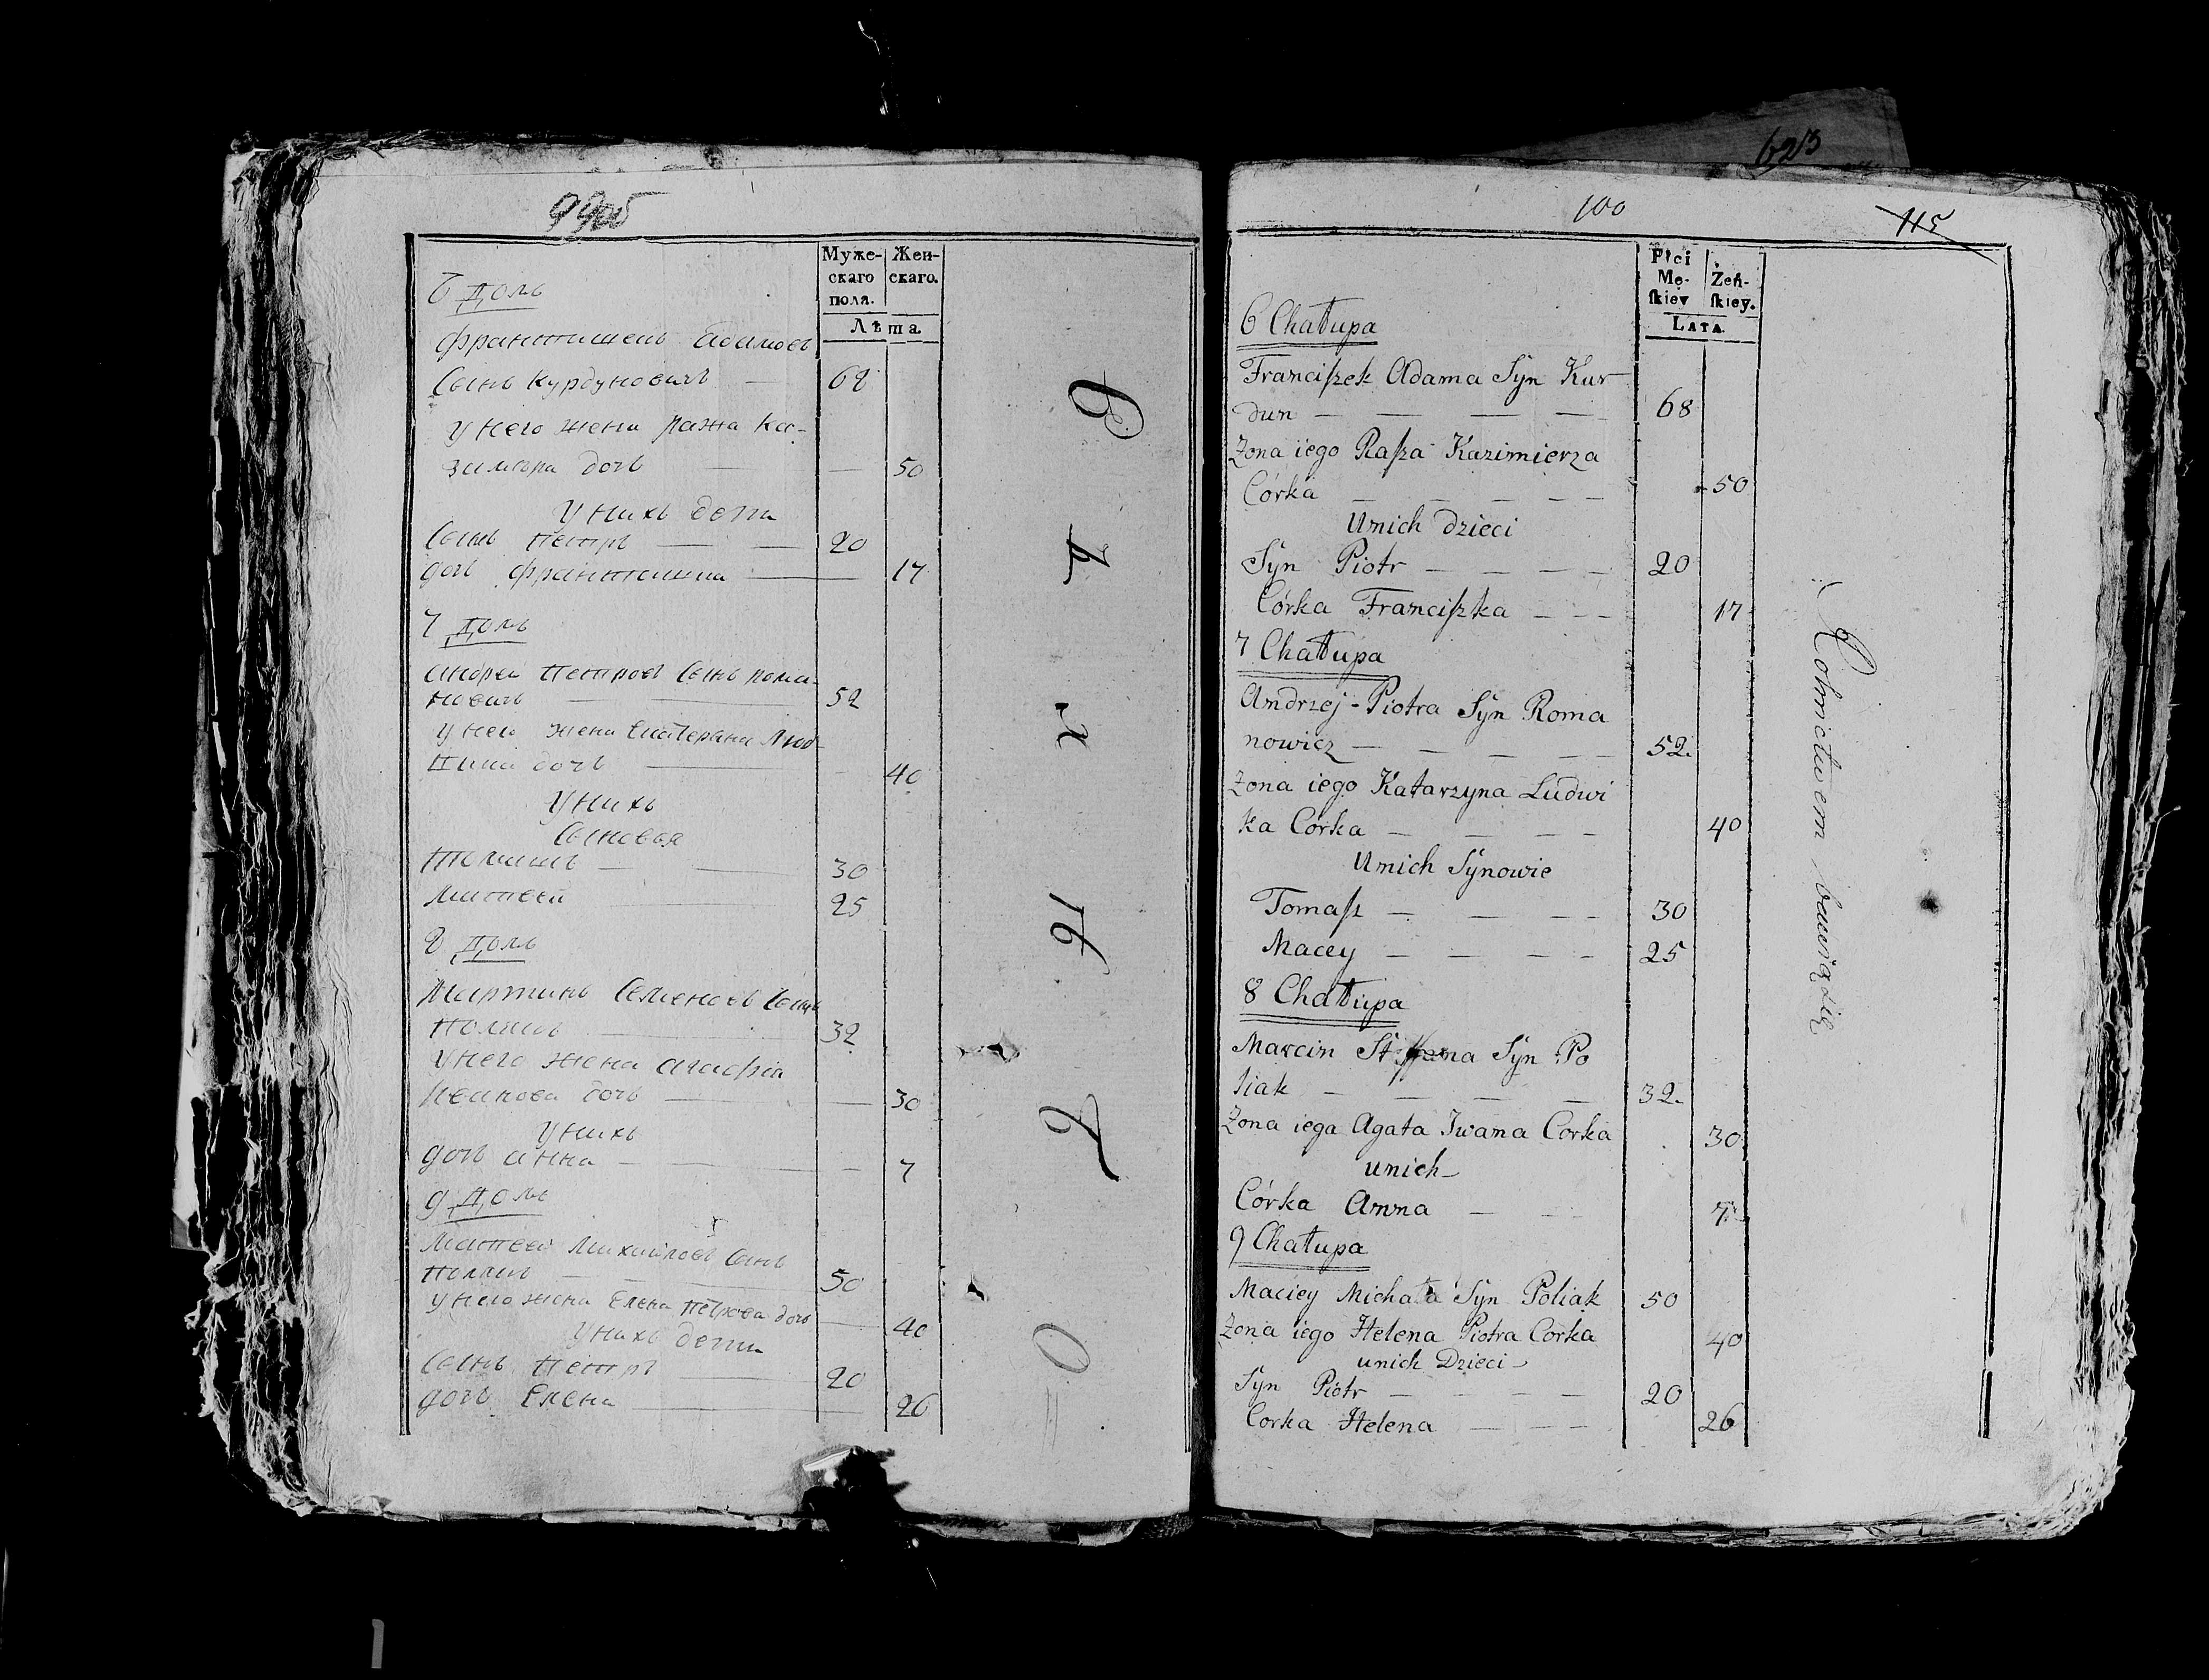 99об
Муже- Жен-
скаго скаго.
поля.
Лѣта
6 Домъ
Францишекъ Адамовъ
Сынъ Курдуновичь — 68
У него жена Ражка Ка-
зимѣра дочь — 50
У нихъ дети
Сынъ Петръ — — 20
Дочь Францишка — 17
7 Домъ
Андрей Петровъ Сынъ Рома-
новичь — 52
У него жена Екатерина Люд-
вика дочь — 40
У нихъ
Сыновья
Томашъ — — 30
Матвей 25
8 Домъ
Мартинъ Семеновъ Сынъ
Полякъ 32
У него жена Агафія
Иванова дочь — 30
У нихъ
Дочь Анна — — 7
9 Домъ
Матвей Михайловъ Сынъ
Полякъ — 50
У него жена Елена Петрова дочь — 40
У нихъ дети
Сынъ Петръ 20
Дочь Елена 26
623
100
115
Płci
Mę- Żeń-
ſkiey ſkiey.
LATA
6 Chałupa
Franciſzek Adama Syn Kur
dun — — — — 68
Żona iego Raſza Kazimierza
Córka — — — — — 50
Unich dzieci
Syn Piotr — — — — 20
Córka Franciſzka — — — 17
7 Chałupa
Andrzej Piotra Syn Roma
nowicz — — — — 52.
Żona iego Katarzyna Ludwi
ka Corka — — — — 40
Unich Synowie
Tomaſz — — — — 30
Macey — — — — 25
8 Chałupa
Marcin Syn Po
liak — — — — 32.
Żona iega Agata Iwana Corka 30
unich
Córka Anna — — — 7.
9 Chałupa
Maciey Michała Syn Poliak 50
Żona iego Helena Piotra Corka 40
unich Dzieci
Syn Piotr — — — — 20
Corka Helena — — — 26
Rolnictwem bawią się